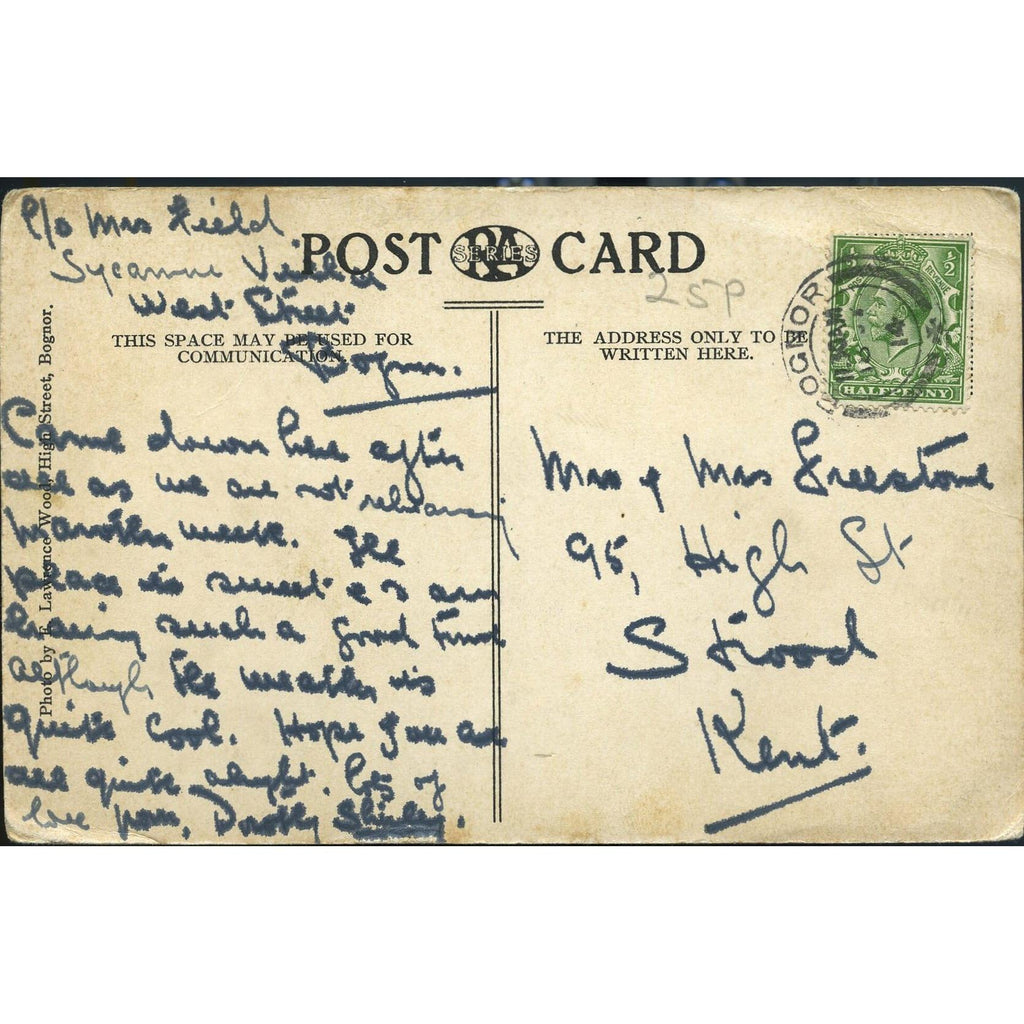 c/o Mrs Field
Sycamore Villa
West Street
Bognor.
POST CARD
RA
SERIES
THIS SPACE MAY BE USED FOR
COMMUNICATION.
THE ADDRESS ONLY TO BE
WRITTEN HERE.
25P
BOGNOR
REVENUE
1/2
HALFPENNY
Came down here after
all as we are not rehearsing
till another week. The
place is sweet & am
having such a good time
although the weather is
quite cool. Hope you are
all quite alright. Lots of
love from, Dorothy Shirley.
Mrs & Mrs Freestone
95, High St
Strood
Kent.
Photo by F. Lawrence Wood, High Street, Bognor.